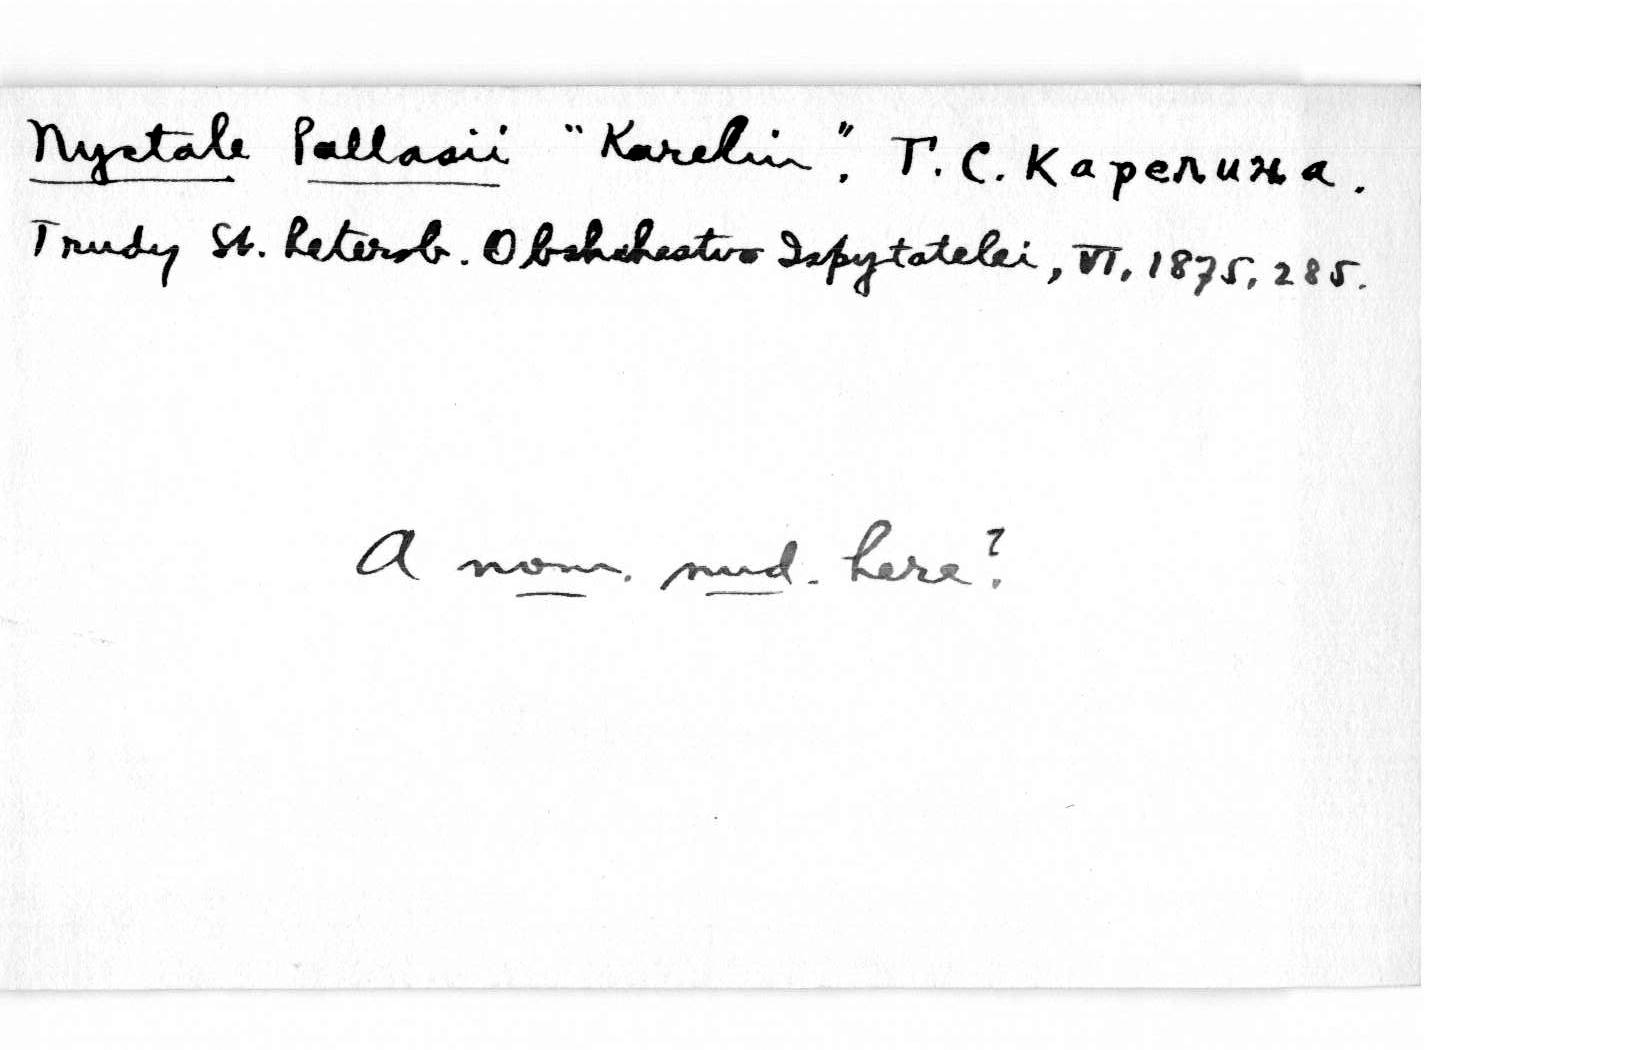 Nyctale Pallasii "Karelin". Г. С. Карелина.
Trudy St. Petersb. Obshchestvo Ispytatelei, VI, 1875, 285.
A nom. nud. here?